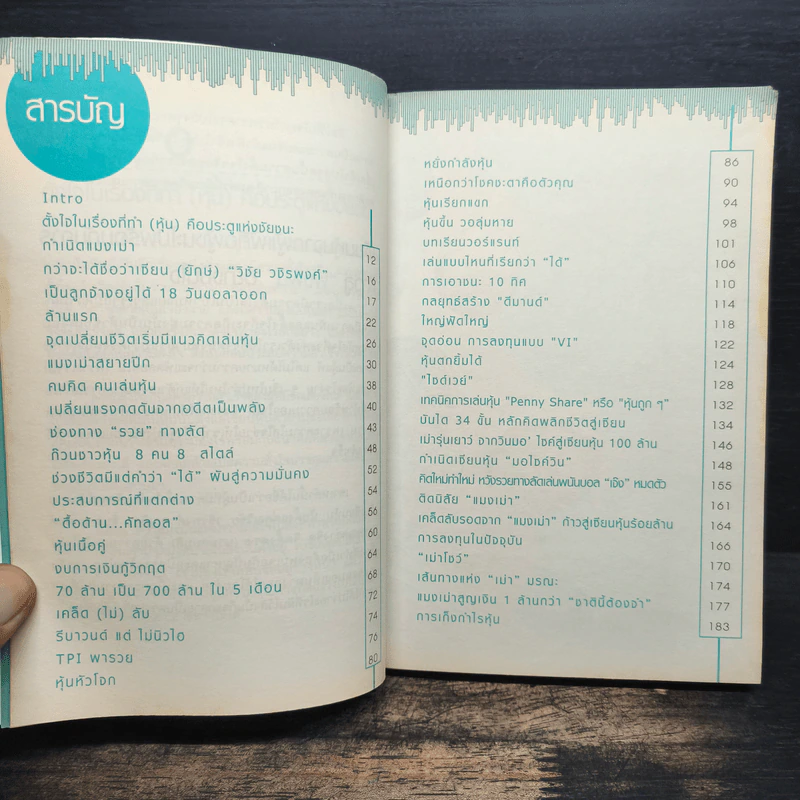 สารบัญ
Intro
ตั้งใจในเรื่องที่ทำ (หุ้น) คือประตูแห่งชัยชนะ
กำเนิดแมงเม่า 12
กว่าจะได้ชื่อว่าเซียน (ยักษ์) "วิชัย วชิรพงศ์" 16
เป็นลูกจ้างอยู่ได้ 18 วันขอลาออก 17
ล้านแรก 22
จุดเปลี่ยนชีวิตเริ่มมีแนวคิดเล่นหุ้น 26
แมงเม่าสยายปีก 30
คมคิด คนเล่นหุ้น 38
เปลี่ยนแรงกดดันจากอดีตเป็นพลัง 40
ช่องทาง "รวย" ทางลัด 43
ก๊วนชาวหุ้น 8 คน 8 สไตล์ 48
ช่วงชีวิตมีแต่คำว่า "ได้" ผันสู่ความมั่นคง 52
ประสบการณ์ที่แตกต่าง 54
"ดื้อด้าน...คัทลอส" 56
หุ้นเนื้อคู่ 60
งบการเงินกู้วิกฤต 64
70 ล้าน เป็น 700 ล้าน ใน 5 เดือน 68
เคล็ด (ไม่) ลับ 72
รีบาวนด์ แต่ ไม่นิวไฮ 74
TPI พารวย 76
หุ้นหัวโจก 80
หยั่งกำลังหุ้น 86
เหนือกว่าโชคชะตาคือตัวคุณ 90
หุ้นเรียกแขก 94
หุ้นขึ้น วอลุ่มหาย 98
บทเรียนวอร์แรนท์ 101
เล่นแบบไหนที่เรียกว่า "ได้" 106
การเอาชนะ 10 ทิศ 110
กลยุทธ์สร้าง "ดีมานด์" 114
ใหญ่ฟัดใหญ่ 118
จุดอ่อน การลงทุนแบบ "VI" 122
หุ้นตกยิ้มได้ 124
"ไซด์เวย์" 128
เทคนิคการเล่นหุ้น "Penny Share" หรือ "หุ้นถูก ๆ" 132
บันได 34 ขั้น หลักคิดพลิกชีวิตสู่เซียน 134
เม่ารุ่นเยาว์ จากวินมอ' ไซค์สู่เซียนหุ้น 100 ล้าน 146
กำเนิดเซียนหุ้น "มอไซค์วิน" 148
คิดใหม่ทำใหม่ หวังรวยทางลัดเล่นพนันบอล "เจ๊ง" หมดตัว 155
ติดนิสัย "แมงเม่า" 161
เคล็ดลับรอดจาก "แมงเม่า" ก้าวสู่เซียนหุ้นร้อยล้าน 164
การลงทุนในปัจจุบัน 166
"เม่าโชว์" 170
เส้นทางแห่ง "เม่า" มรณะ 174
แมงเม่าสูญเงิน 1 ล้านกว่า "ชาตินี้ต้องจำ" 177
การเก็งกำไรหุ้น 183